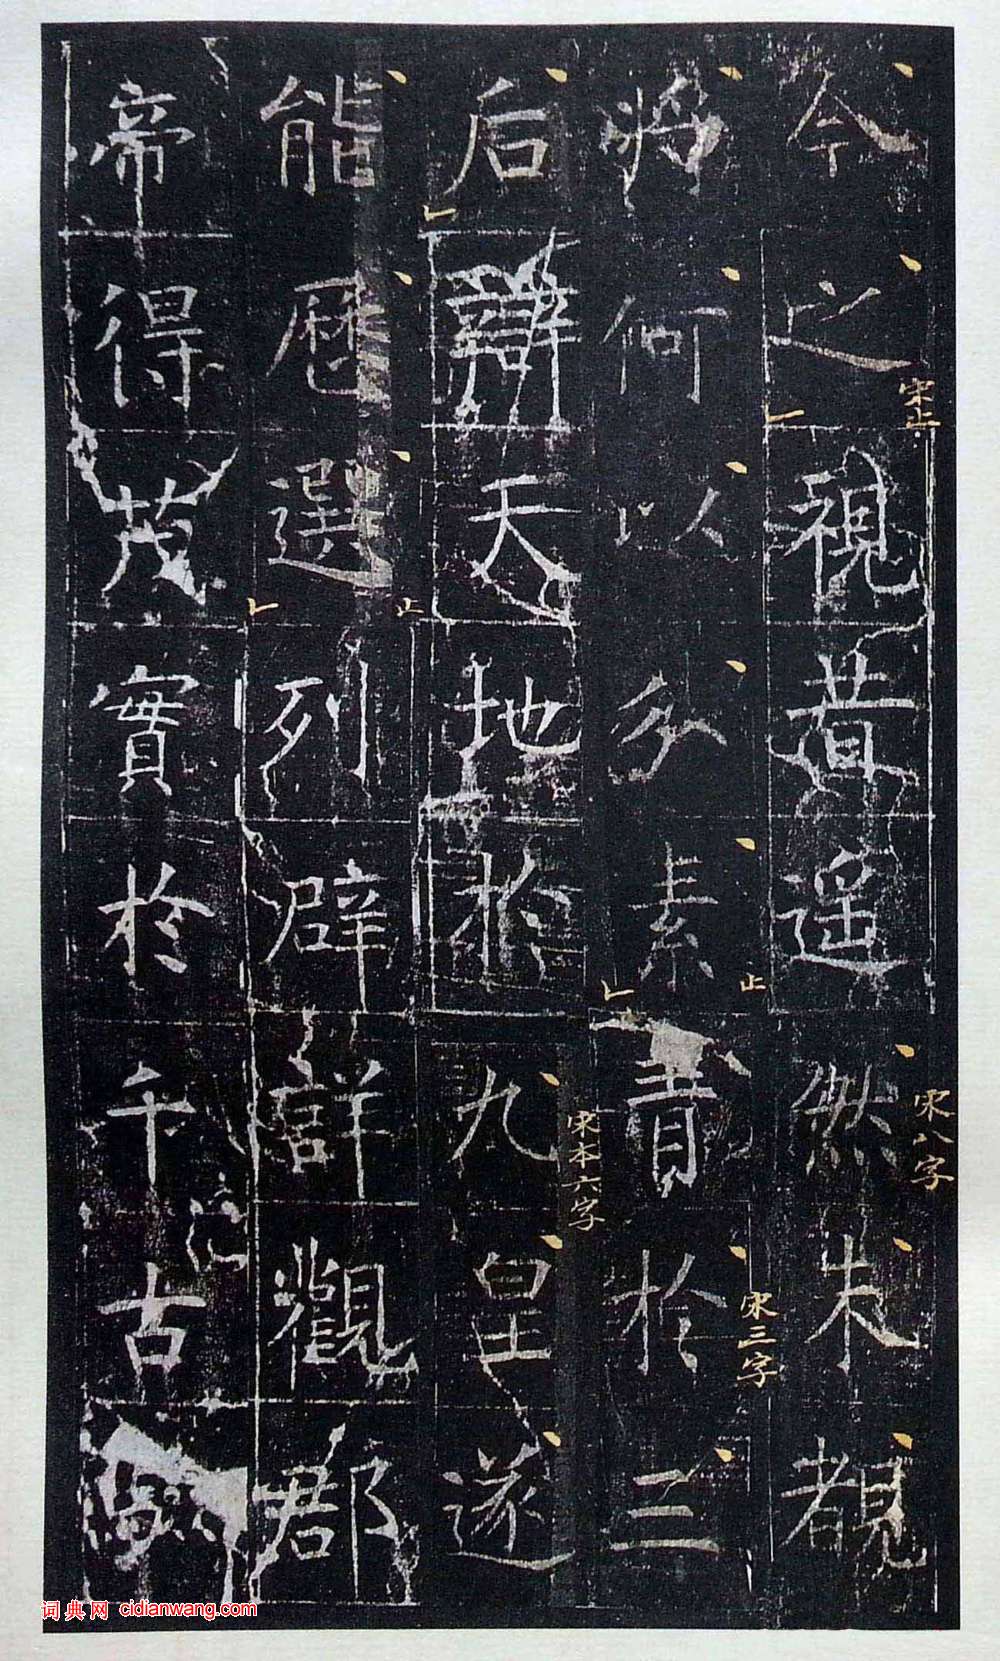 今之視昔遥然未覩
將何以分素青於三
后辯天地於九皇遂
能歷選列辟詳觀郡
帝得茂實於千古
宋止
宋八字
止
宋三字
宋本六字
止
词典网 cidianwang.com